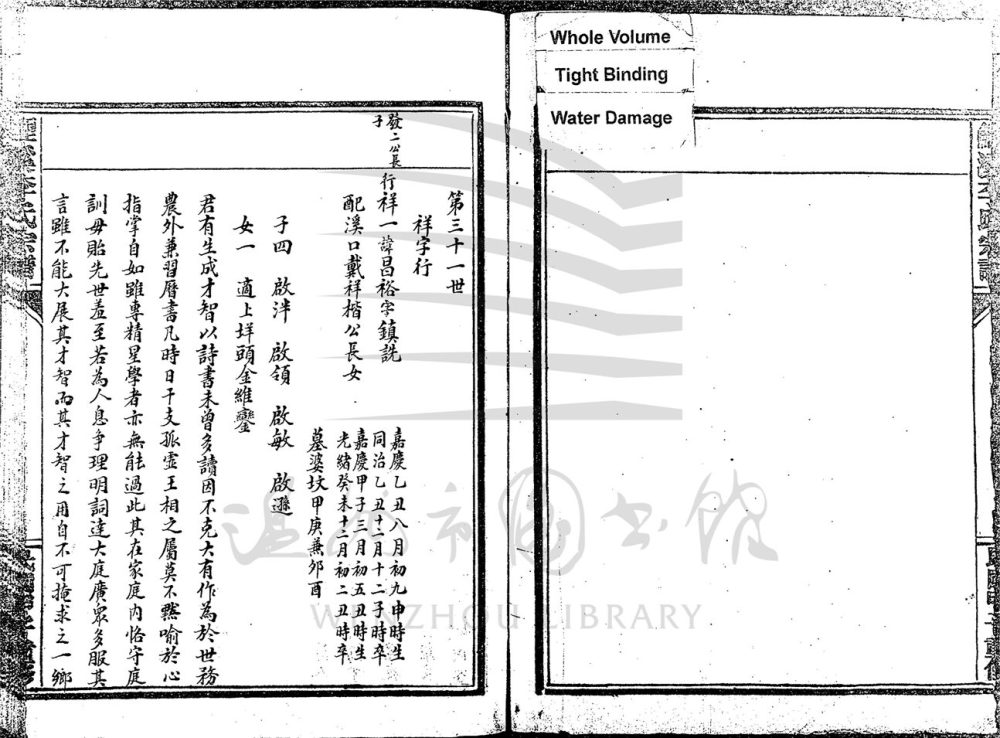 Whole Volume
Tight Binding
Water Damage
第三十一世
祥字行
發二公長子
行祥一諱昌裕字鎮詵
嘉慶乙丑八月初九申時生
同治乙丑十二月十二子時卒
配溪口戴祥楷公長女
嘉慶甲子三月初五丑時生
光緒癸未十二月初二丑時卒
墓婆坟甲庚兼卯酉
子四 啟泮 啟領 啟敏 啟遜
女一 適上垟頭金維鑾
君有生成才智以詩書未曾多讀因不克大有作為於世務
農外兼習曆書凡時日干支孤虛王相之屬莫不黙喻於心
指掌自如雖專精星學者亦無能過此其在家庭内恪守庭
訓毋貽先世羞至若為人息争理明詞達大庭廣眾多服其
言雖不能大展其才智而其才智之用自不可掩求之一鄉
温州市图书馆
WENZHOU LIBRARY